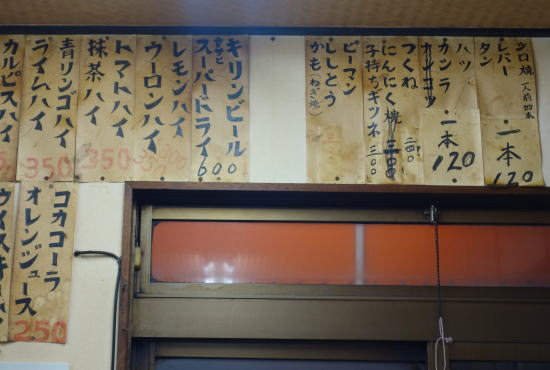 シロ焼(一人前四本)
レバー
タン
一本
120
ハツ
カシラ
ナンコツ
一本
120
つくね
にんにく焼 300
子持ちギツネ 300
ピーマン
ししとう
かも(ねぎ焼)
キリンビール
アサヒ
スーパードライ
600
レモンハイ 300
ウーロンハイ 350
トマトハイ
抹茶ハイ 350
青リンゴハイ
ライムハイ 350
カルピスハイ
コカコーラ
オレンジュース
250